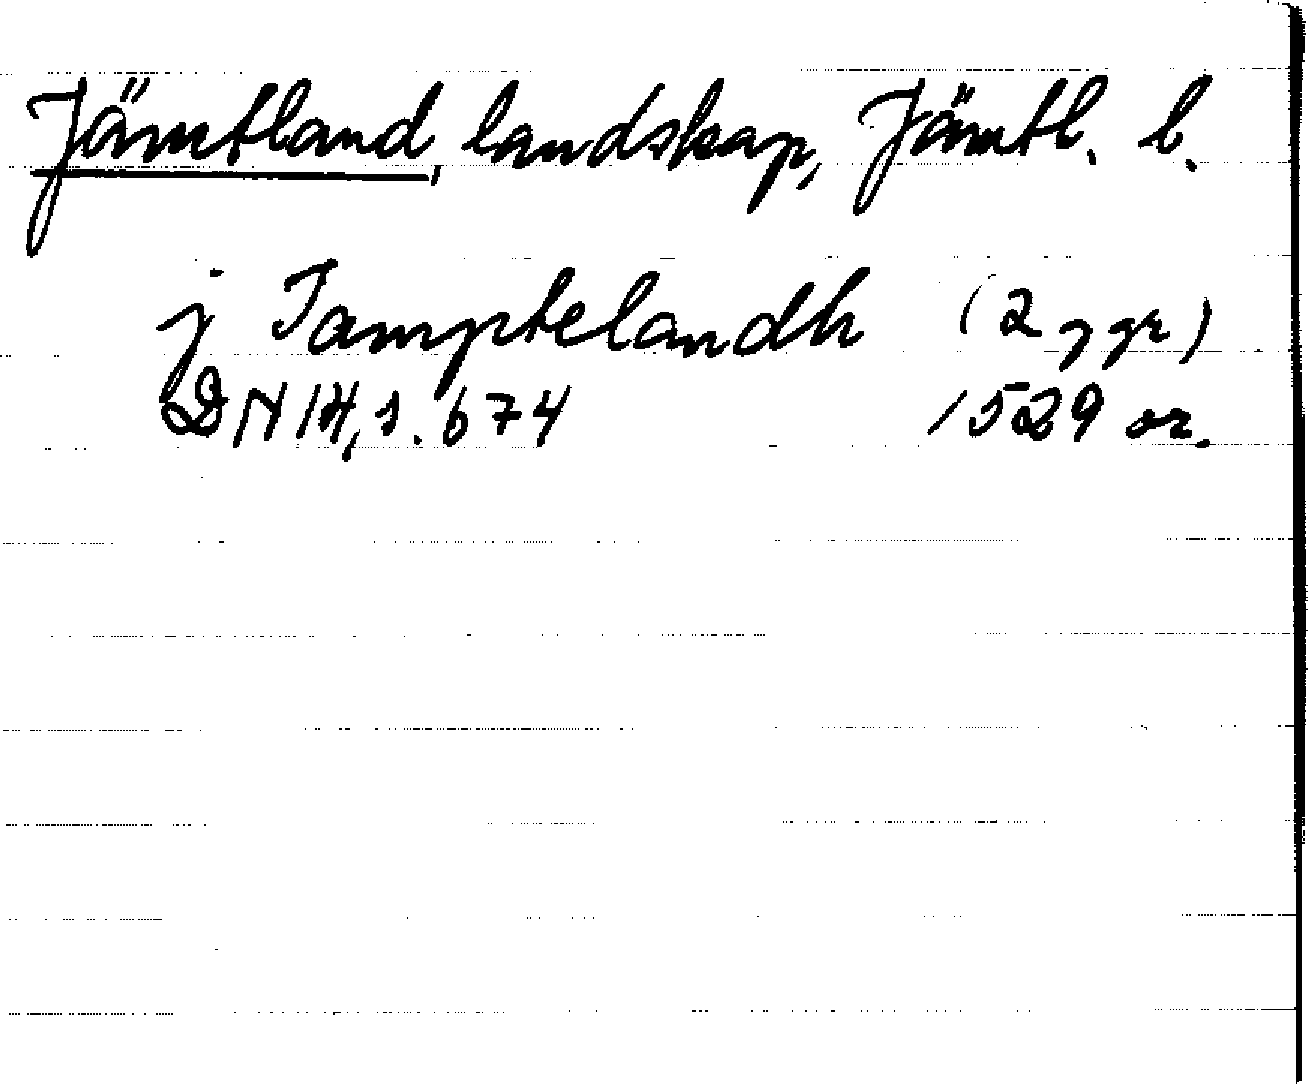 Jämtland, landskap, Jämtl. l.
j Jamptelandh (2 ggr)
DN 14, s. 674 1529 or.